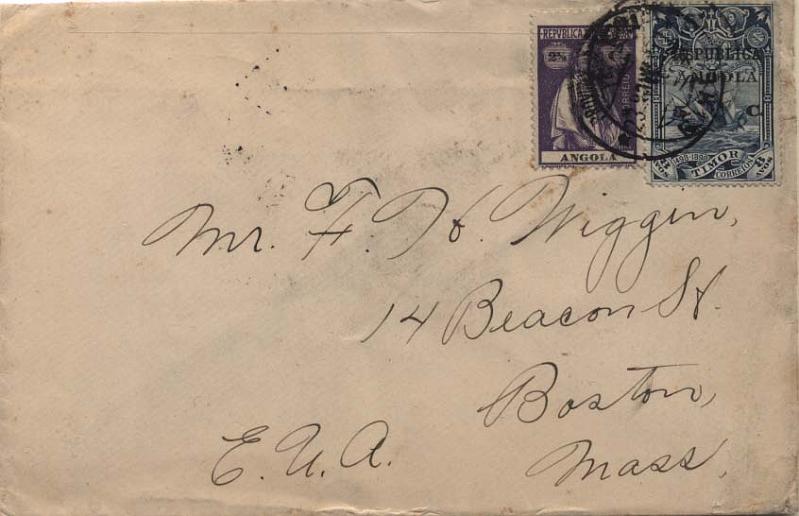 REPUBLICA
2½ C
CORREIO
ANGOLA
REPUBLICA
ANGOLA
C.
1498-1898
TIMOR
CORREIO
Mr. F. H. Wiggin,
14 Beacon St.
Boston,
Mass.
E.U.A.